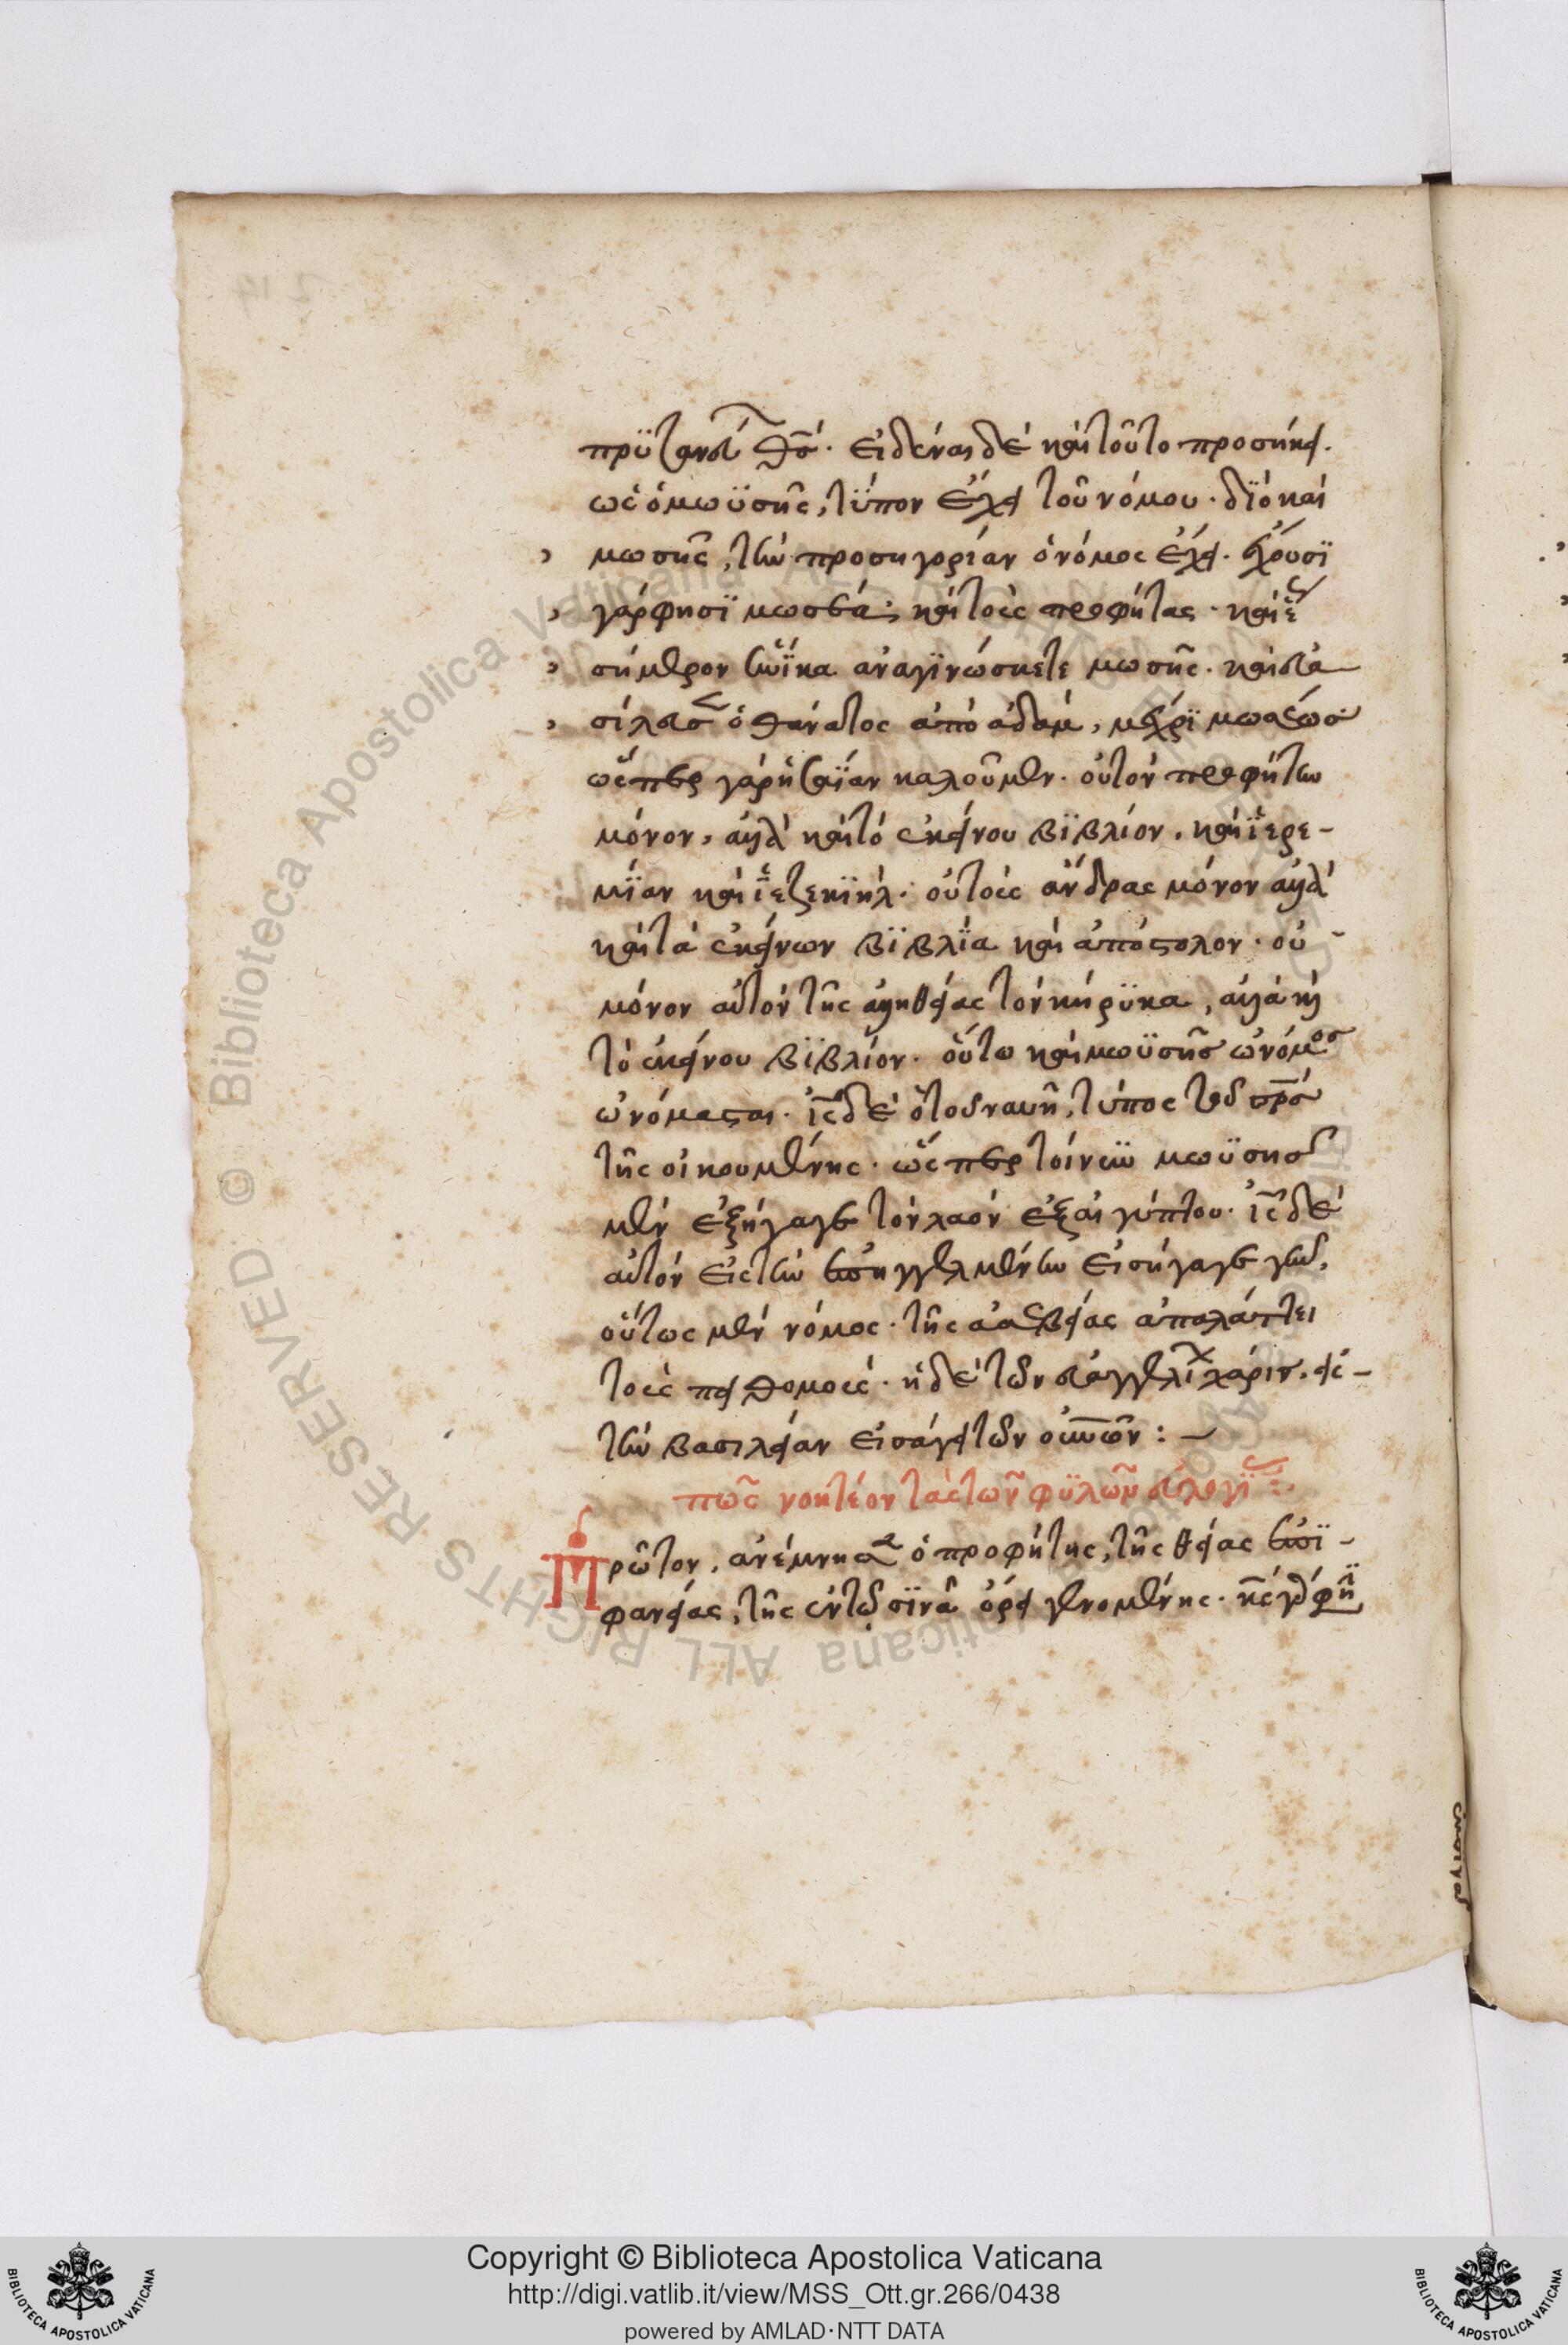 εἰδέναι δὲ καὶ τοῦτο προσήκει.
ὡς ὁ μωϋσῆς, τϋπον ἔχει τοῦ νόμου. δϊὸ καὶ
μωσῆς, τὴν προσηγορίαν ὁ νόμος ἔχει. ἔχουσϊ
γάρ φησϊ μωσέα· καὶ τοὺς προφήτας. καὶ ἕ
σήμερον ἡνΐκα ἀναγϊνώσκετε μωσῆς. καὶ ἐβα
σίλευσεν ὁ θάνατος ἀπὸ ἀδὰμ, μέχρϊ μωσέως
ὥσπερ γὰρ ἡσαΐαν καλοῦμεν. οὐ τὸν προφήτην
μόνον, ἀλλὰ καὶ τὸ ἐκείνου βϊβλίον. καὶ ϊἑρε-
μΐαν καὶ ϊἑζεκϊήλ. οὐ τοὺς ἄνδρας μόνον ἀλλὰ
καὶ τὰ ἐκείνων βϊβλΐα καὶ ἀπόστολον. οὐ
μόνον αὐτὸν τῆς ἀληθείας τὸν κήρϋκα, ἀλλὰ καὶ
τὸ ἐκείνου βϊβλίον. οὕτω καὶ μωϋσῆς ὡ νόμος
ὠνόμασται. ἰς δὲ ὁ τοῦ ναυῆ, τύπος τοῦ σρς
τῆς οἰκουμένης. ὥσπερ τοίνϋν μωϋσῆς
μὲν ἐξήγαγε τὸν λαὸν ἐξ αἰγύπτου. ἰς δὲ
αὐτὸν εἰς τὴν ἐπηγγελμένην εἰσήγαγε γῆν.
οὕτως μὲν νόμος. τῆς ἀσεβείας ἀπαλάττει
τοὺς πειθομους. ἡ δὲ τῶν εὐαγγελι χάρις. εἰς-
τὴν βασιλείαν εἰσάγει τῶν οὐνῶν :-
πῶς νοητέον τὰς τῶν φϋλῶν εὐλογϊ :·
Πρῶτον, ἀνέμνησεν ὁ προφήτης, τῆς θείας ἐπϊ-
φανείας, τῆς ἐν τῷ σϊνᾶ ὄρει γενομένης. κς γάρ φη